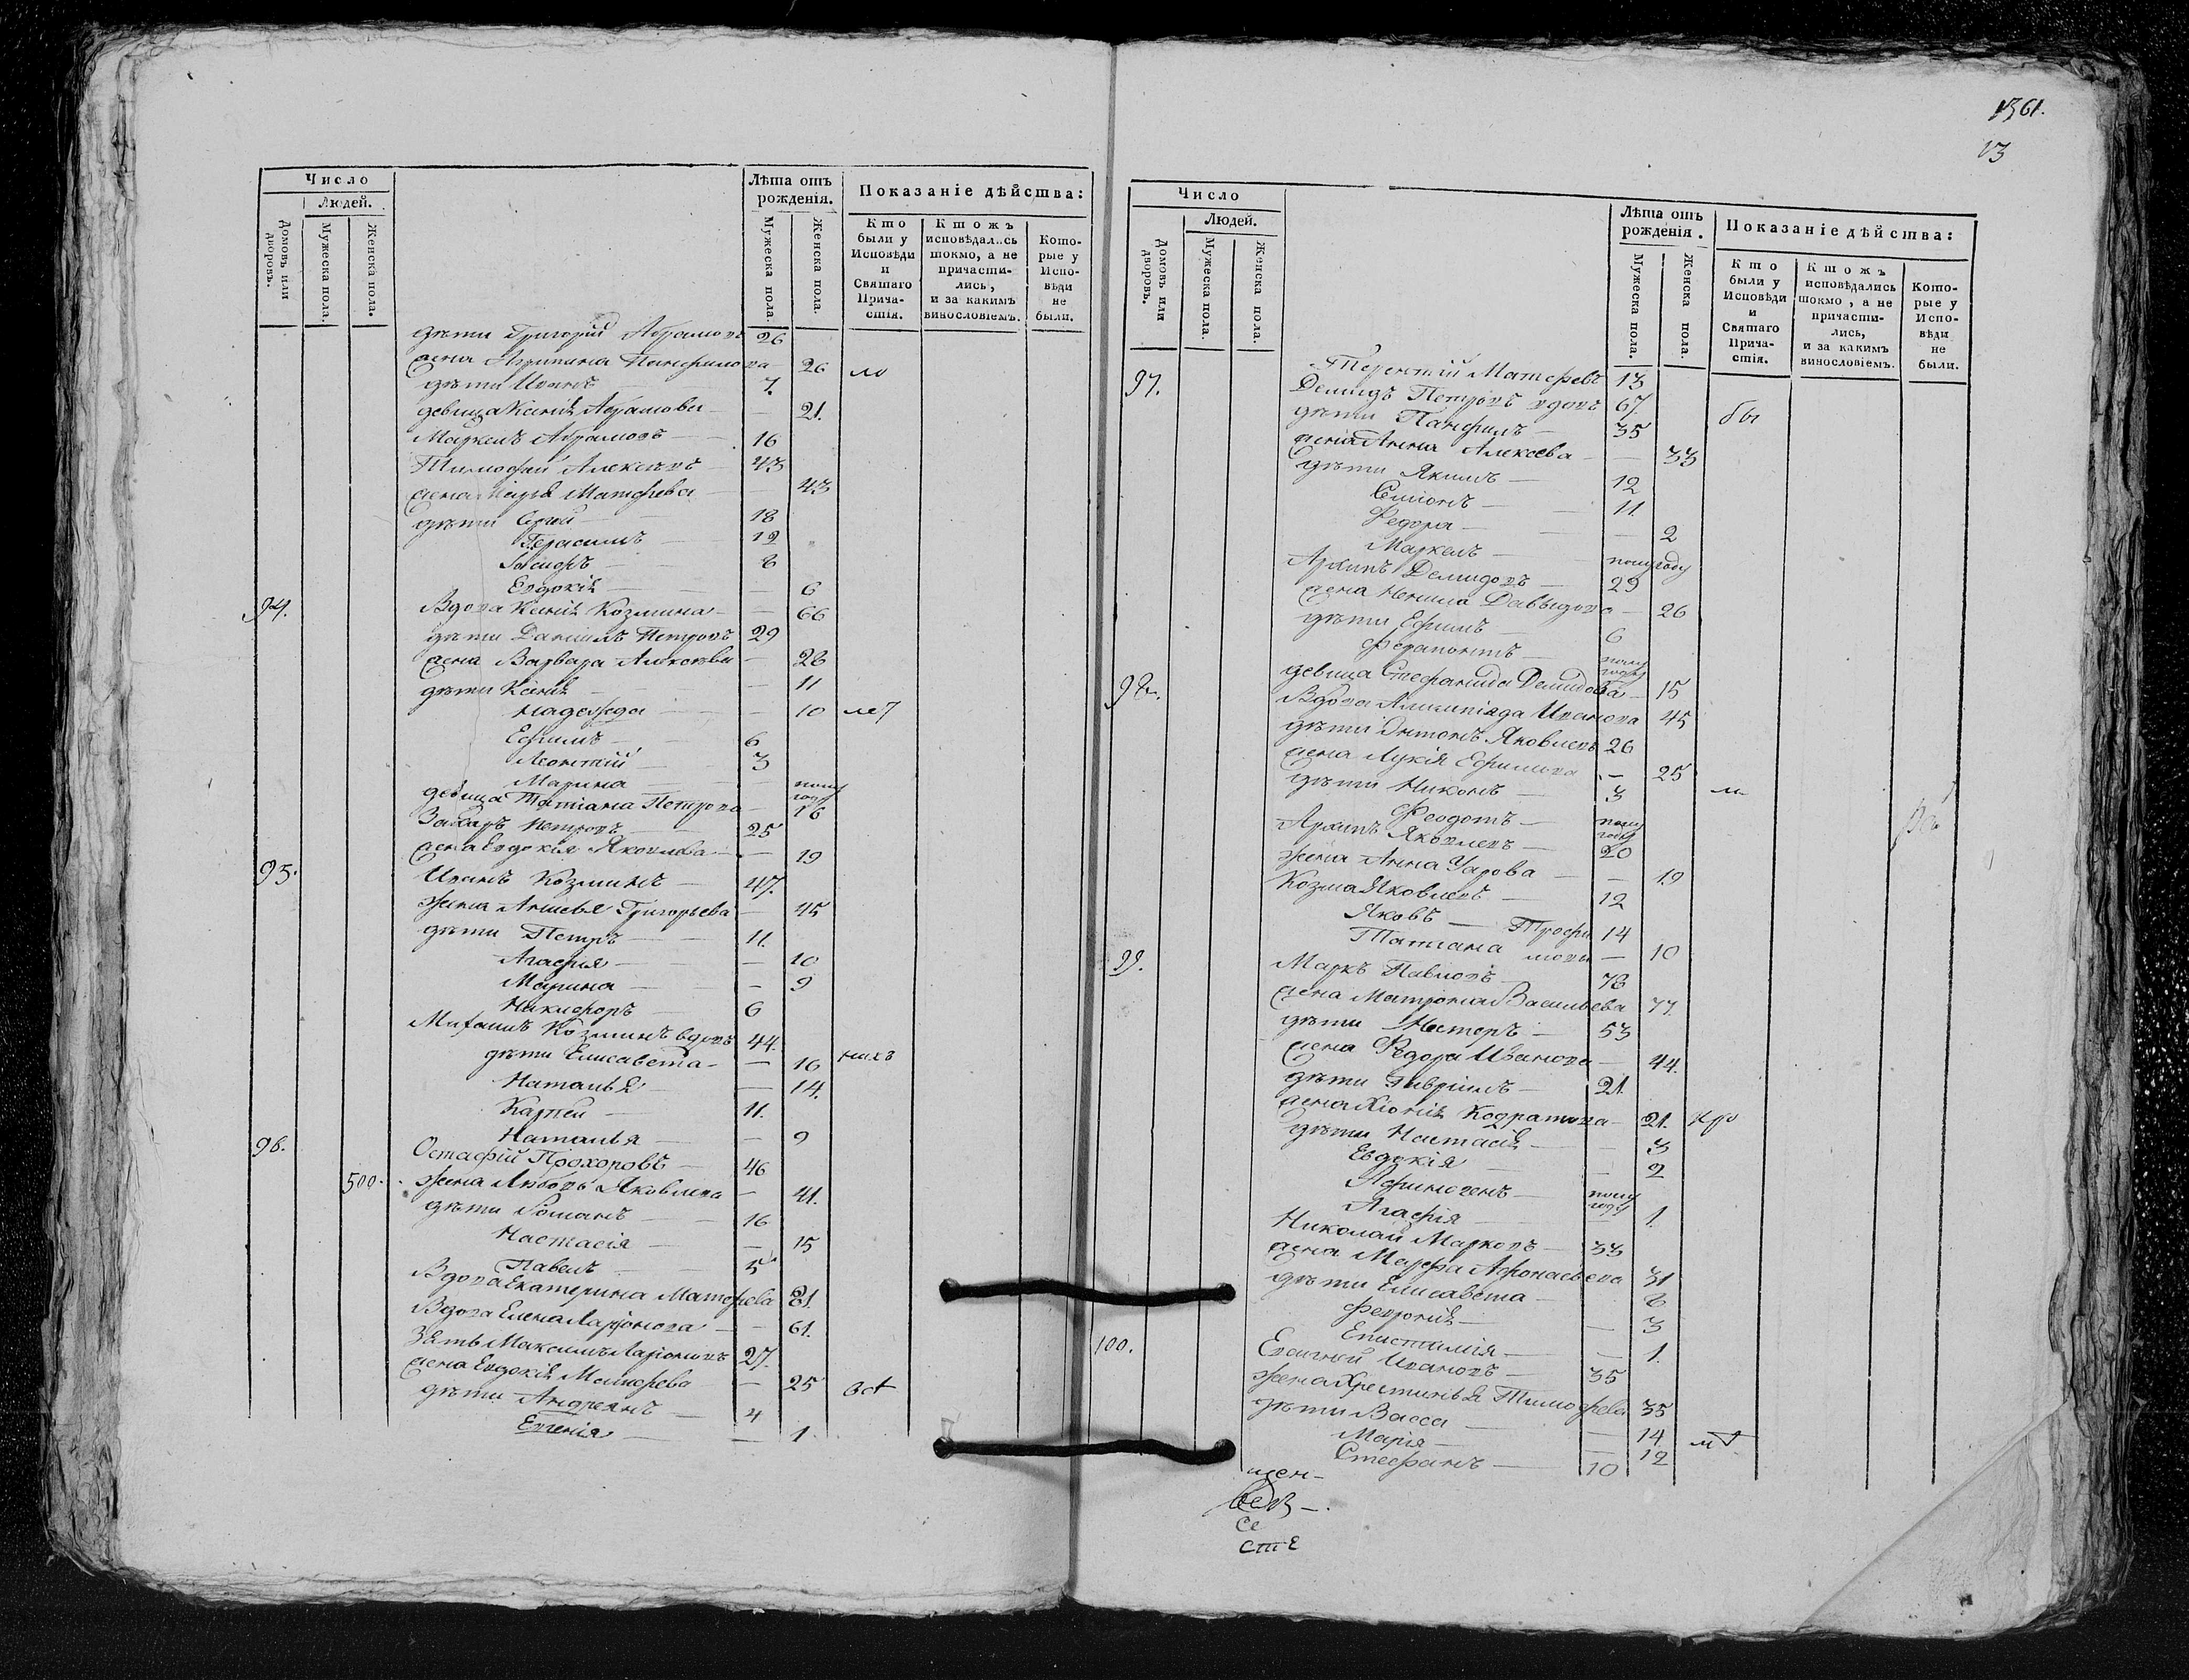 Число
Людей.
Домовъ или дворовъ.
Мужеска пола.
Женска пола.
Лѣта отъ рожденія.
Мужеска пола.
Женска пола.
Показаніе дѣйства:
Кто были у Исповѣди и Святаго Прича- стія.
Ктожъ исповѣдались токмо, а не причасти- лись, и за какимъ винословіемъ.
Кото- рые у Испо- вѣди не были.
дѣти Григорий Абрамовъ 26
жена Агрипина Панфилова — 26 ло
дѣти Иванъ 7.
девица Ксенія Абрамова — 21.
Маркелъ Абрамовъ — 16
Тимофей Алексѣевъ — 43
жена Марья Матфеева — 43
дѣти Сергей — 18
Герасимъ — 12
— 8
Евдокія — 6
94. Вдова Ксенія Козмина — 66
дѣти Даниилъ Петровъ 29
жена Варвара Алексѣева — 28
дѣти Ксенія — 11
Надежда — 10
Ефимъ — 6
Леонтій — 3
Марина — полу году
девица Татіана Петрова — 16
Захаръ Петровъ — 25
жена Евдокия Яковлева — 19
95. Иванъ Козминъ — 47.
жена Анисья Григорьева — 45
дѣти Петръ — 11.
Агафья — 10
Марина — 9
Никифоръ — 6
Михаилъ Козминъ вдовъ 44.
дѣти Елисавета — 16 нихъ
Наталья — 14.
Карпей — 11.
Наталья — 9
96. Остафій Прохоровъ — 46
500. жена Любовь Яковлева — 41.
дѣти Романъ — 16
Настасія — 15
Павелъ — 5
Вдова Екатерина Матфеева 81.
Вдова Елена Ларіонова — 61.
Зять Максимъ Ларіоновъ 27.
жена Евдокія Матфеева — 25
дѣти Андреянъ — 4
Евгенія — 1
1361.
13
Число
Людей.
Домовъ или дворовъ.
Мужеска пола.
Женска пола.
Лѣта отъ рожденія.
Мужеска пола.
Женска пола.
Показаніе дѣйства:
Кто были у Исповѣди и Святаго Прича- стія.
Ктожъ исповѣдались токмо, а не причасти- лись, и за какимъ винословіемъ.
Кото- рые у Испо- вѣди не были.
Терентій Матфеевъ 13
97. Демидъ Петровъ вдовъ 67. бы
дѣти Панфилъ — 35
жена Анна Алексеева — 33
дѣти Якимъ — 12
Симіонъ — 11.
Федора — 2
Маркелъ — полугоду
Архипъ Демидовъ — 29
жена Ненила Давыдова — 26
дѣти Ефимъ — 6
Ферапонтъ — полу году
девица Стефанида Демидова — 15
98. Вдова Алимпіяда Иванова 45
дѣти Антонъ Яковлевъ 26
жена Лукія Ефимова — 25
дѣти Никонъ — 3
Феодотъ — полу году
Архипъ Яковлевъ — 20
жена Анна Уарова — 19
Козма Яковлевъ — 12
Яковъ — Трофи 14
Татіана мовы — 10
99. Маркъ Павловъ — 78
жена Матрона Васильева 77.
дѣти Нестеръ — 53
жена Федора Иванова — 44.
дѣти Гавріилъ — 21.
жена Хіонія Кодратова — 21.
дѣти Настасія — 3
Евдокія — 2
Афиногенъ — полу году
Агафія — 1.
Николай Марковъ — 33
жена Марфа Афонасьева 31
дѣти Елисавета — 8
Феврониѣ — 3
Епистимія — 1.
100. Евсигней Ивановъ — 35
жена Христинья Тимофеева 35
дѣти Васса — 14
Марія — 12
Стефанъ — 10
щен-
Се
сте